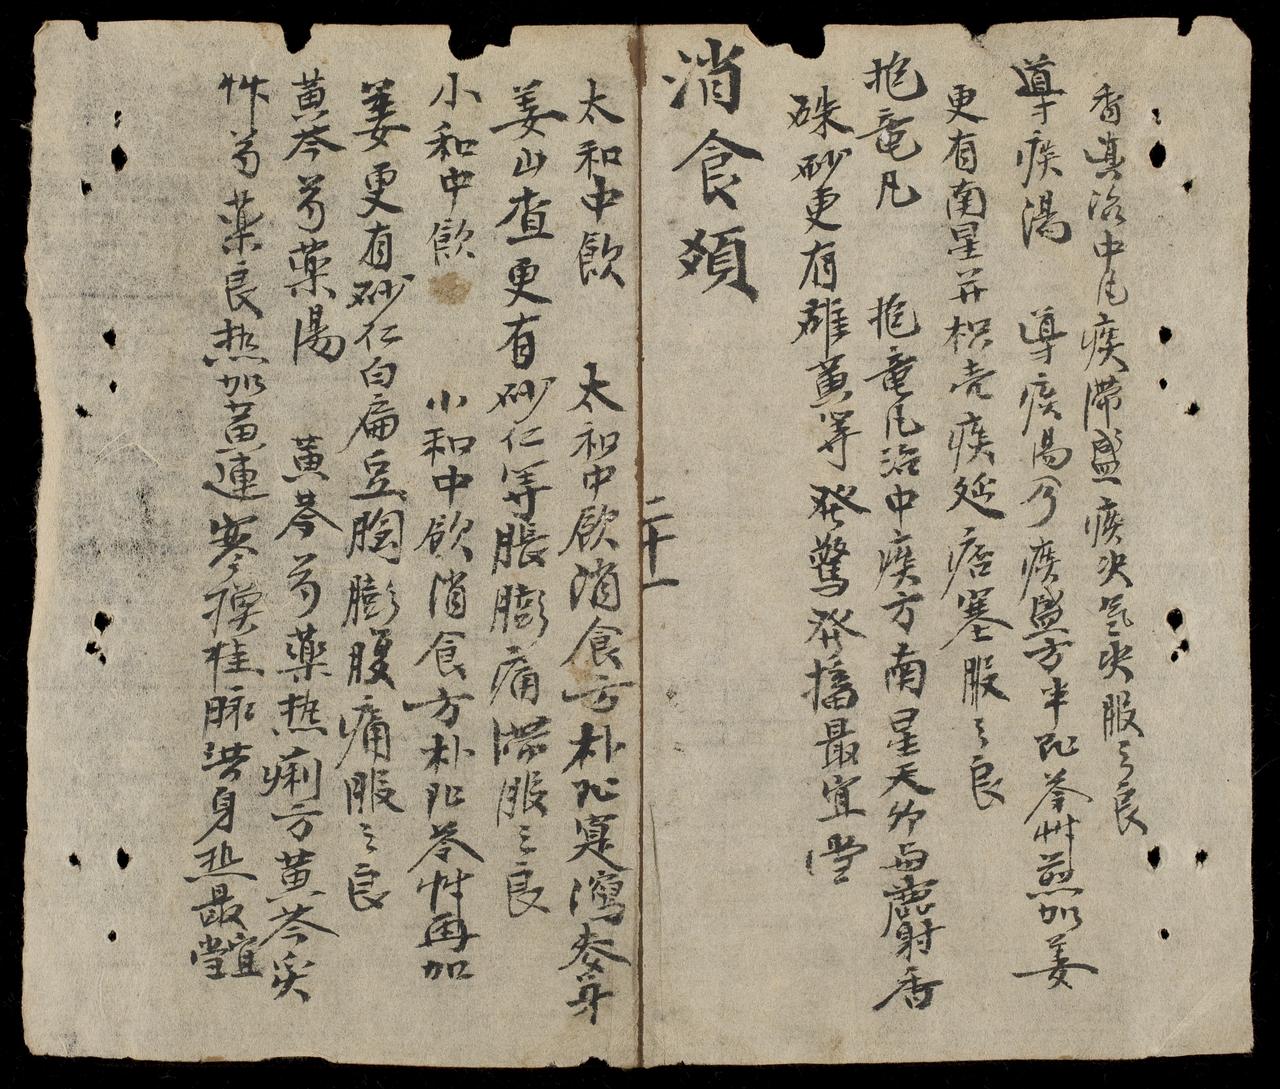 香真治中凡痰滞盛痰决氣决服之良
導痰湯　導痰湯乃痰盛方半阯苓艸煎加姜
更有南星并枳壳痰延痞塞服之良
抱竜凡　抱竜凡治中痰方南星天竹与麝香
硃砂更有雄黄等發驚發搐最宜當
消食類
二十一
太和中飲　太和中飲消食方朴阯寔瀉麥牙
姜山查更有砂仁等脹膨痛滞服之良
小和中飲　小和中飲消食方朴阯苓艸再加
姜更有砂仁白扁豆胸膨腹痛服之良
黄芩芍藥湯　黄芩芍藥热痢方黄芩炙
艸芍藥良热加黄連寒換桂脉洪身热最宜當